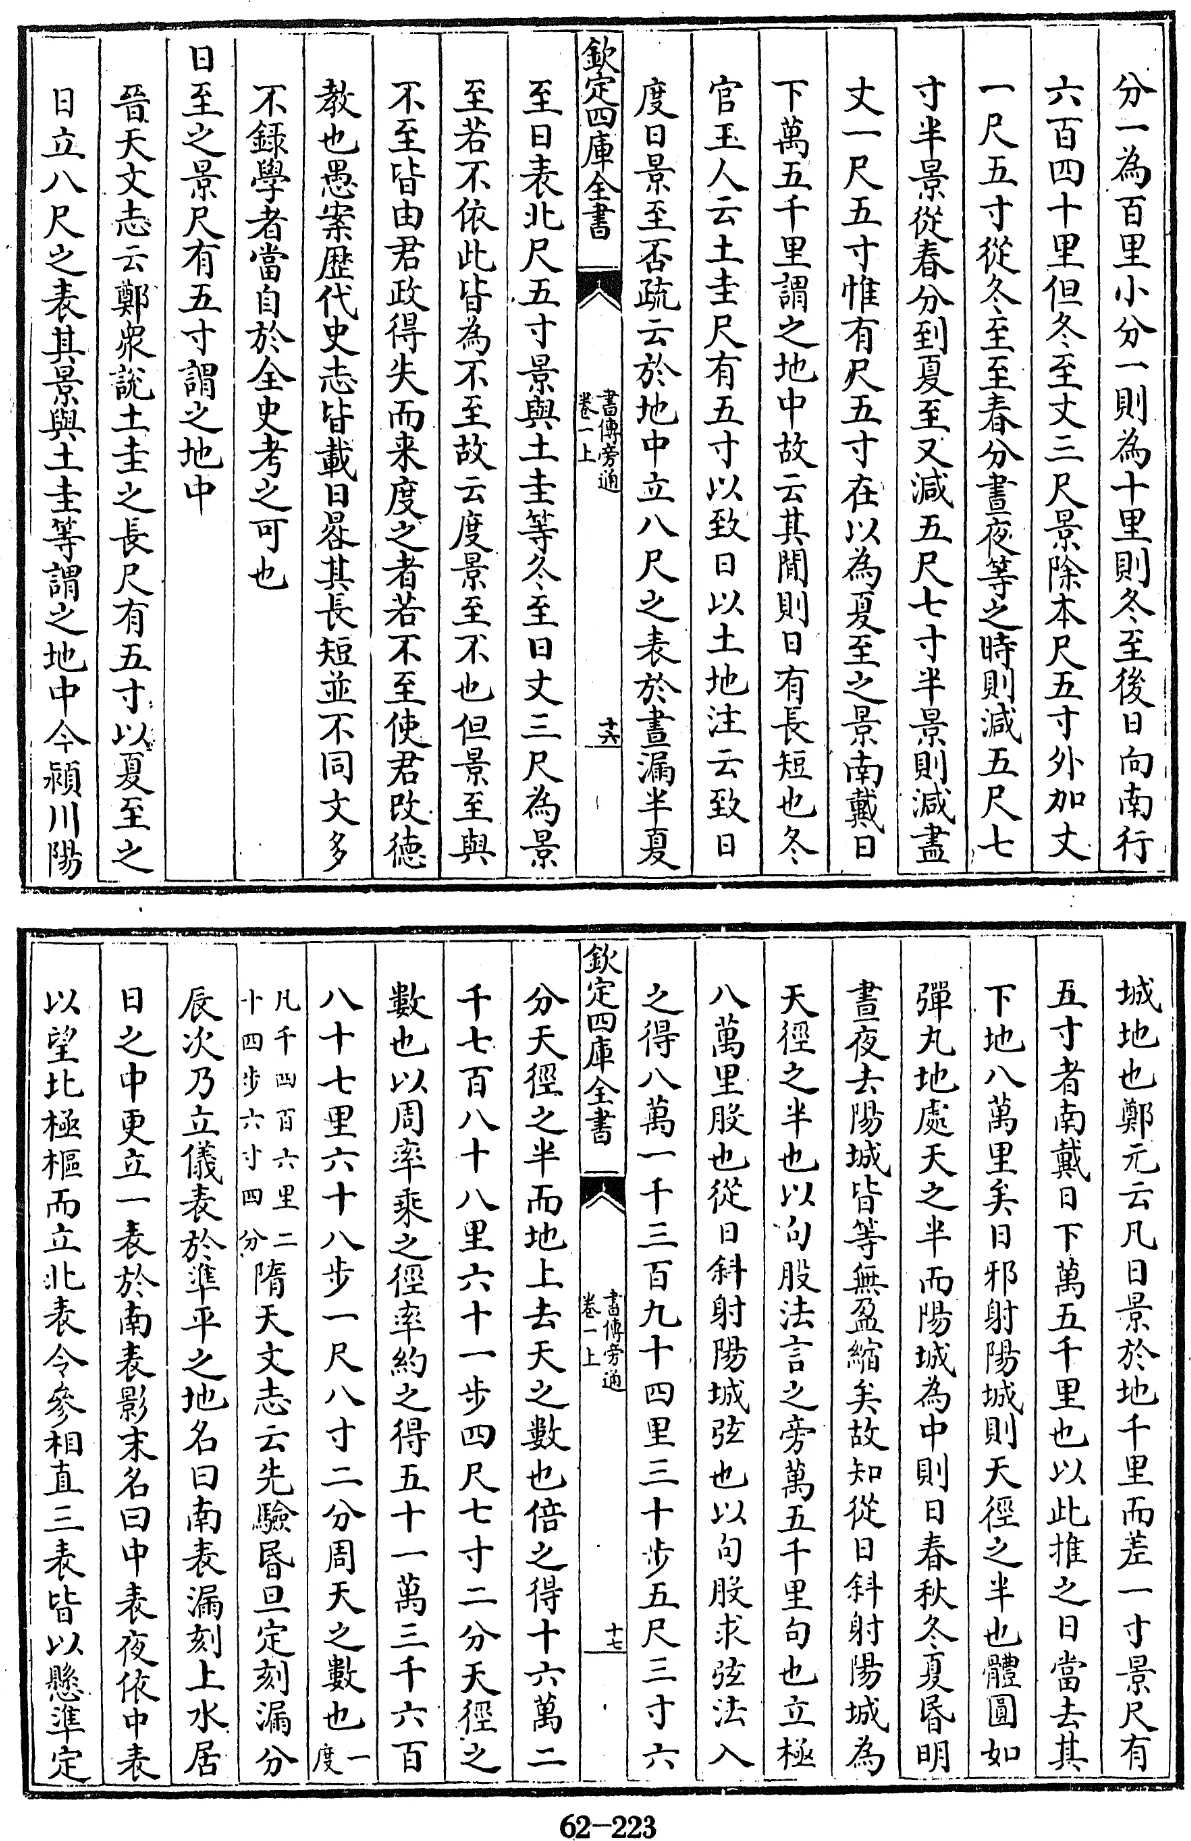 分一為百里小分一則為十里則冬至後日向南行
六百四十里但冬至丈三尺景除本尺五寸外加丈
一尺五寸從冬至至春分晝夜等之時則減五尺七
寸半景從春分到夏至又減五尺七寸半景則減盡
丈一尺五寸惟有尺五寸在以為夏至之景南戴日
下萬五千里謂之地中故云其間則日有長短也冬
官玉人云土圭尺有五寸以致日以土地注云致日
度日景至否疏云於地中立八尺之表於晝漏半夏
欽定四庫全書
書傳旁通
卷一上
十六
至日表北尺五寸景與土圭等冬至日丈三尺為景
至若不依此皆為不至故云度景至不也但景至與
不至皆由君政得失而来度之者若不至使君改德
教也愚案歴代史志皆載日晷其長短並不同文多
不録學者當自於全史考之可也
日至之景尺有五寸謂之地中
晉天文志云鄭衆說土圭之長尺有五寸以夏至之
日立八尺之表其景與土圭等謂之地中今潁川陽
城地也鄭元云凡日景於地千里而差一寸景尺有
五寸者南戴日下萬五千里也以此推之日當去其
下地八萬里矣日邪射陽城則天徑之半也體圓如
彈丸地處天之半而陽城為中則日春秋冬夏昏明
晝夜去陽城皆等無盈縮矣故知從日斜射陽城為
天徑之半也以句股法言之旁萬五千里句也立極
八萬里股也從日斜射陽城弦也以句股求弦法入
之得八萬一千三百九十四里三十步五尺三寸六
欽定四庫全書
書傳旁通
卷一上
十七
分天徑之半而地上去天之數也倍之得十六萬二
千七百八十八里六十一步四尺七寸二分天徑之
數也以周率乘之徑率約之得五十一萬三千六百
八十七里六十八步一尺八寸二分周天之數也一度
凡千四百六里二十四步六寸四分隋天文志云先驗昏旦定刻漏分
辰次乃立儀表於準平之地名曰南表漏刻上水居
日之中更立一表於南表影末名曰中表夜依中表
以望北極樞而立北表令參相直三表皆以懸準定
62-223